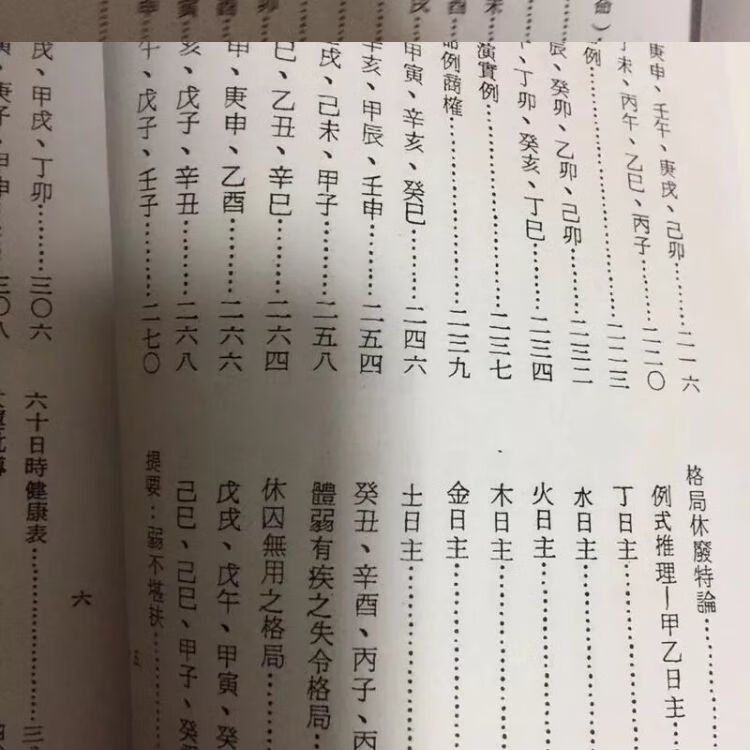 庚申、壬午、庚戌、己卯……二一六
丁未、丙午、乙巳、丙子……二二〇
例……二二三
辰、癸卯、乙卯、己卯……二三二
丁卯、癸亥、丁巳……二三四
演實例……二三七
例商榷……二三九
甲寅、辛亥、癸巳……二四六
辛亥、甲辰、壬申……二五四
戌、己未、甲子……二五八
巳、乙丑、辛巳……二六四
甲、庚申、乙酉……二六六
亥、戊子、辛丑……二六八
午、戊子、壬子……二七〇
格局休廢特論……
例式推理—甲乙日主……
丁日主……
水日主……
火日主……
木日主……
金日主……
土日主……
癸丑、辛酉、丙子、丙
體弱有疾之失令格局……
休囚無用之格局……
戊戌、戊午、甲寅、癸
己巳、己巳、甲子、癸
提要：弱不堪扶……
五
戌、甲戌、丁卯……三〇六
寅、庚子、甲申……三〇八
六十日時健康表……三
六